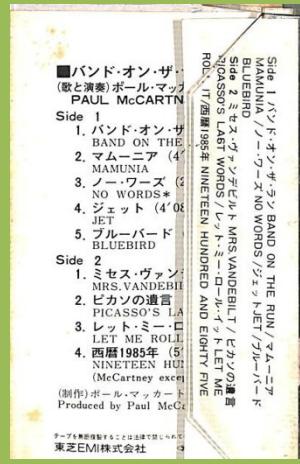 ■バンド・オン・ザ・
(歌と演奏)ポール・マッカ
PAUL McCARTN
Side 1
1. バンド・オン・ザ
BAND ON THE
2. マムーニア (4′
MAMUNIA
3. ノー・ワーズ (2
NO WORDS*
4. ジェット (4′08
JET
5. ブルーバード (
BLUEBIRD
Side 2
1. ミセス・ヴァンデ
MRS. VANDEBIL
2. ピカソの遺言
PICASSO'S LA
3. レット・ミー・ロ
LET ME ROLL
4. 西暦1985年 (5′
NINETEEN HUN
(McCartney excep
(制作)ポール・マッカート
Produced by Paul McCa
テープを無断複製することは法律で禁じられて
東芝EMI株式会社
Side 1 バンド・オン・ザ・ラン BAND ON THE RUN / マムーニア
MAMUNIA / ノー・ワーズ NO WORDS / ジェット JET / ブルーバード
BLUEBIRD
Side 2 ミセス・ヴァンデビルト MRS. VANDEBILT / ピカソの遺言
PICASSO'S LAST WORDS / レット・ミー・ロール・イット LET ME
ROLL IT / 西暦1985年 NINETEEN HUNDRED AND EIGHTY FIVE